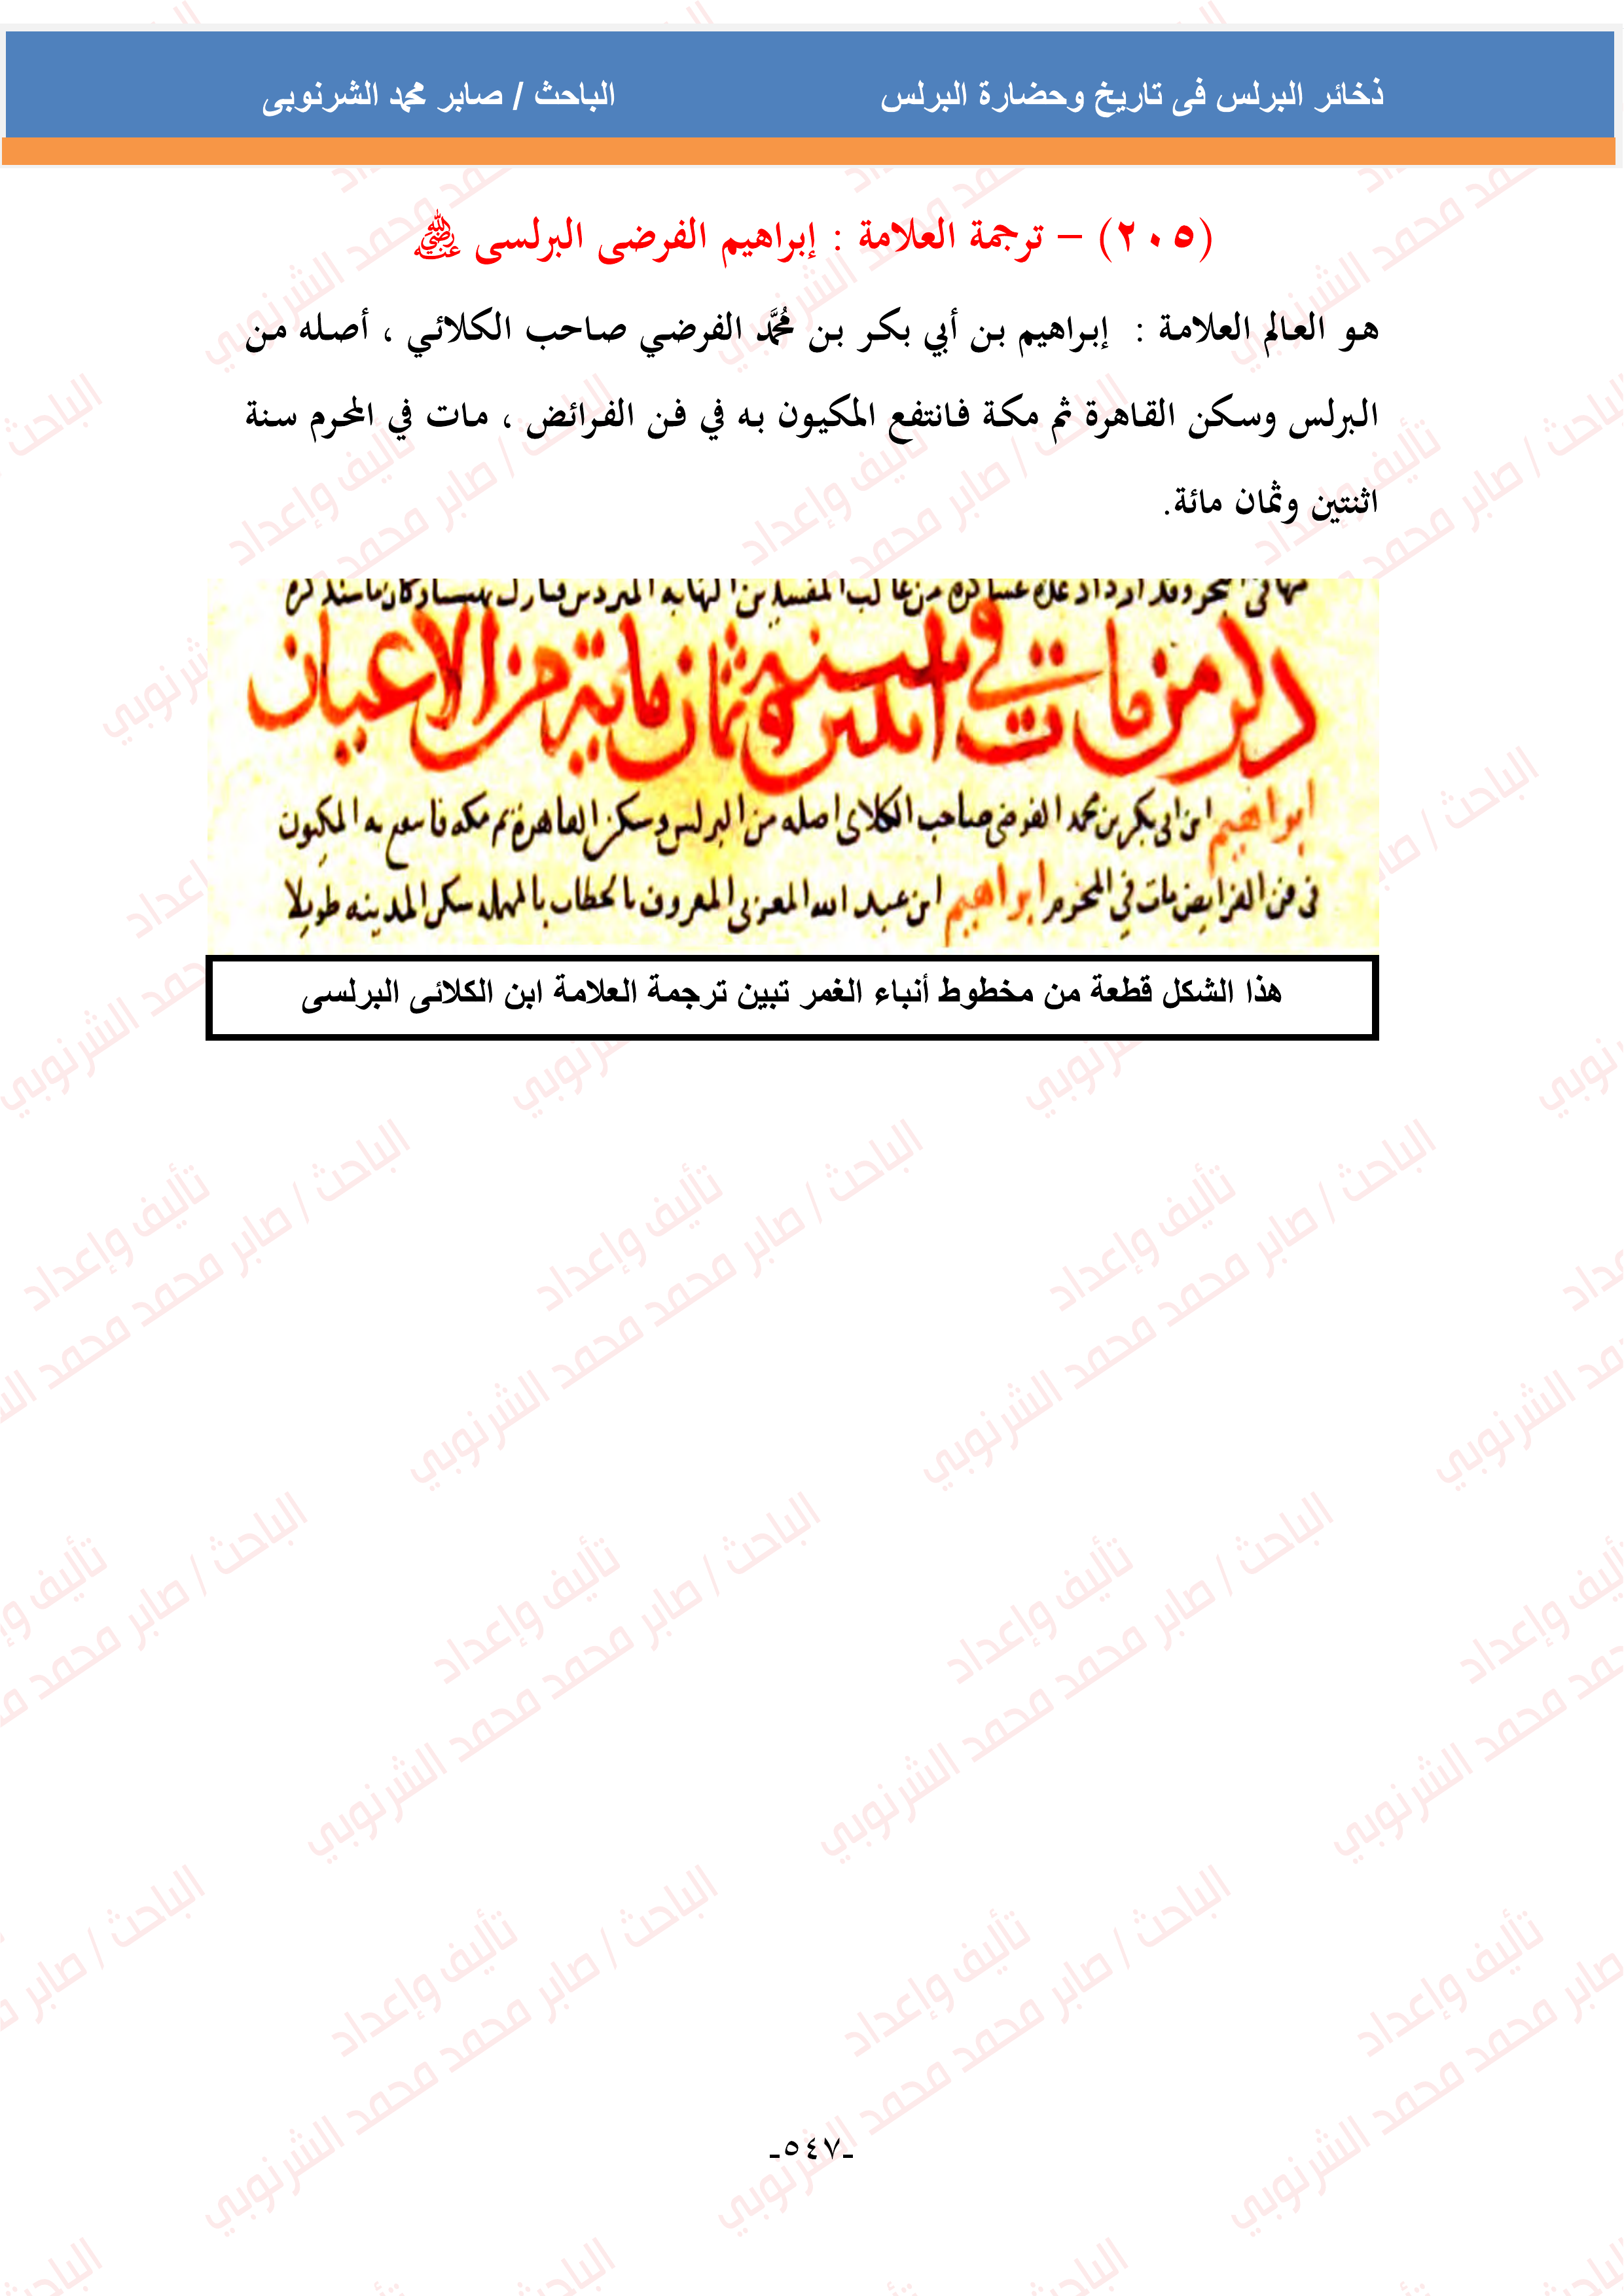 ذخائر البرلس فى تاريخ وحضارة البرلس الباحث / صابر محمد الشرنوبى
(٢٠٥) – ترجمة العلامة : إبراهيم الفرضى البرلسى ﵁
هو العالم العلامة : إبراهيم بن أبي بكر بن مُحمَّد الفرضي صاحب الكلائي ، أصله من
البرلس وسكن القاهرة ثم مكة فانتفع المكيون به في فن الفرائض ، مات في المحرم سنة
اثنتين وثمان مائة.
ذكر من مات في سنة اثنتين وثمان ماية من الاعيان
ابراهيم ابن ابى بكر بن محمد الفرضى صاحب الكلاى اصله من البرلس وسكن القاهرة ثم مكه فانتفع به المكيون
فى فن الفرايض مات في المحرم ابراهيم ابن عبد الله المغربى المعروف بالحطاب بالمهمله سكن المدينه طويلا
هذا الشكل قطعة من مخطوط أنباء الغمر تبين ترجمة العلامة ابن الكلائى البرلسى
تأليف وإعداد
الباحث / صابر محمد محمد الشرنوبي
-٥٤٧-